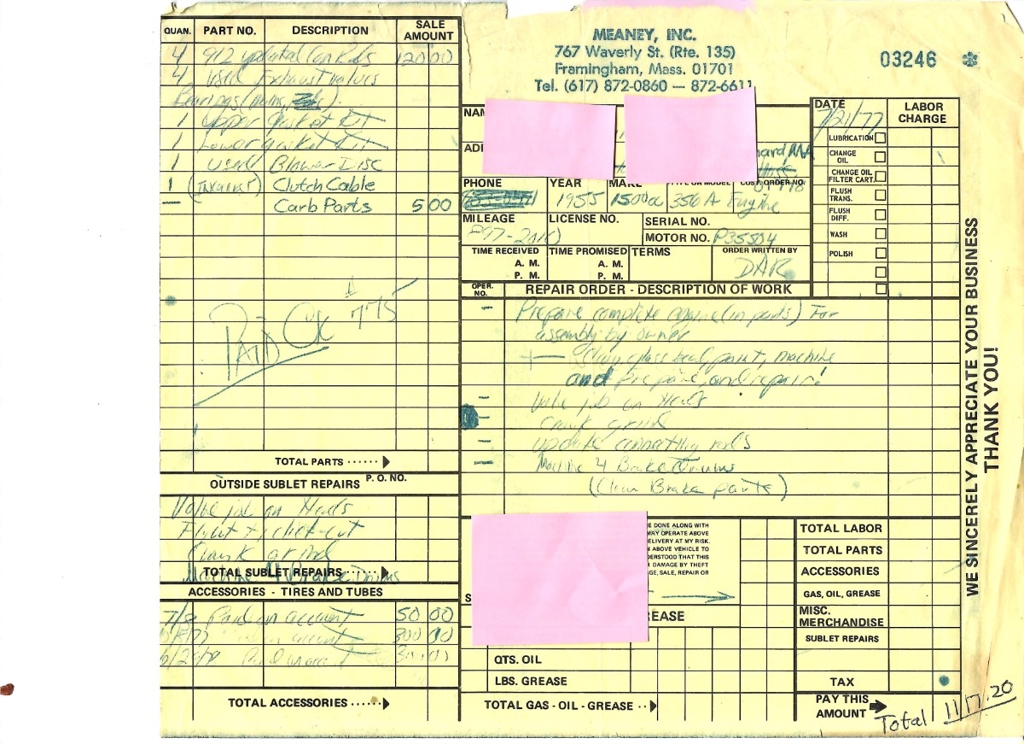 QUAN. PART NO. DESCRIPTION SALE AMOUNT
4 912 updated Con Rods 120 00
4 used Exhaust valves
Bearings (mains,
1 Upper Gasket Kit
1 Lower gasket Kit
1 used Blower Disc
1 Clutch Cable
— Carb Parts 5 00
PAID CK # 775
TOTAL PARTS
OUTSIDE SUBLET REPAIRS P. O. NO.
Valve job on Heads
Crank grind
Machine 4 Brake Drums
TOTAL SUBLET REPAIRS
ACCESSORIES - TIRES AND TUBES
Paid on account 50 00
300 00
TOTAL ACCESSORIES
MEANEY, INC.
767 Waverly St. (Rte. 135)
Framingham, Mass. 01701
Tel. (617) 872-0860 — 872-6611
03246
DATE
7/21/77
LABOR CHARGE
LUBRICATION
CHANGE OIL
CHANGE OIL FILTER CART.
FLUSH TRANS.
FLUSH DIFF.
WASH
POLISH
PHONE YEAR MAKE TYPE OR MODEL CUST. ORDER NO.
1955 1500cc 356 A Engine
MILEAGE LICENSE NO. SERIAL NO.
MOTOR NO. P35504
TIME RECEIVED TIME PROMISED TERMS ORDER WRITTEN BY
A. M. A. M.
P. M. P. M.
DAR
OPER. NO. REPAIR ORDER - DESCRIPTION OF WORK
- Prepare complete engine (in parts) For
assembly by owner
Clean, glass bead, paint, machine
and prepare, and repair
- Valve job on Heads
Crank grind
- update connecting rods
- Machine 4 Brake Drums
(Clean Brake parts)
DONE ALONG WITH
OPERATE ABOVE
DELIVERY AT MY RISK.
ABOVE VEHICLE TO
DERSTOOD THAT
DAMAGE BY THEFT
SALE, REPAIR OR
REASE
QTS. OIL
LBS. GREASE
TOTAL GAS - OIL - GREASE
TOTAL LABOR
TOTAL PARTS
ACCESSORIES
GAS, OIL, GREASE
MISC. MERCHANDISE
SUBLET REPAIRS
TAX
PAY THIS AMOUNT
Total 1117.20
WE SINCERELY APPRECIATE YOUR BUSINESS
THANK YOU!